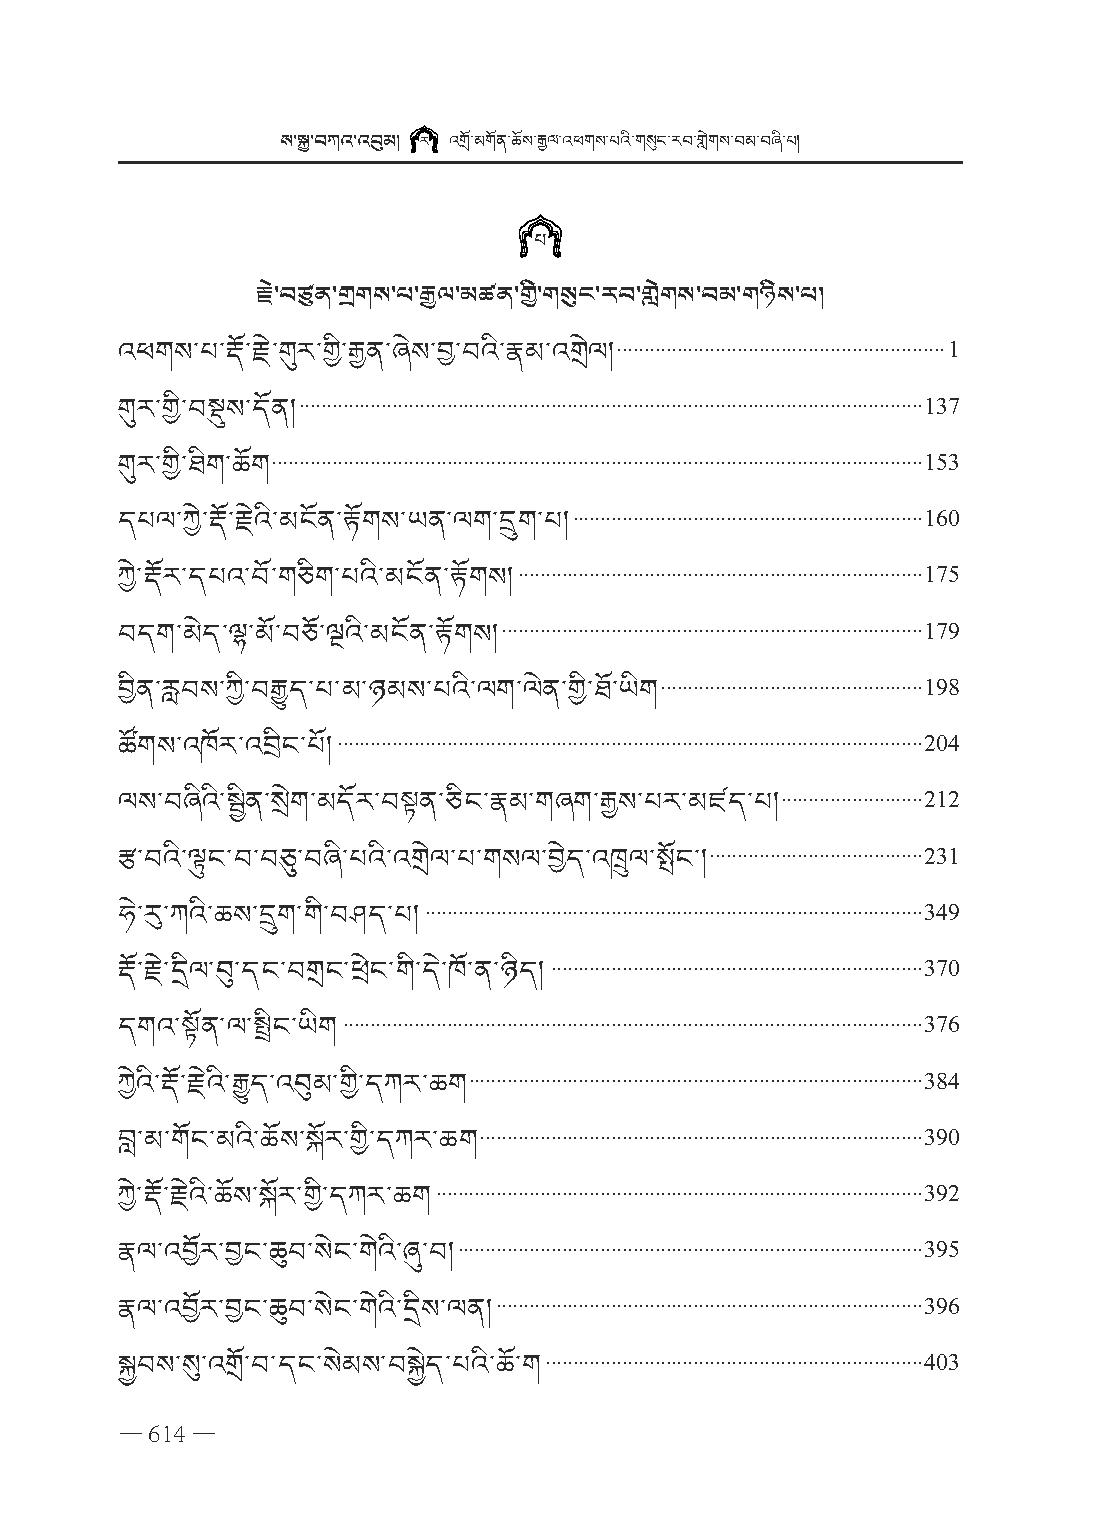 ས་སྐྱ་བཀའ་འབུམ། ར འགྲོ་མགོན་ཆོས་རྒྱལ་འཕགས་པའི་གསུང་རབ་གླེགས་བམ་བཞི་པ།
པ
རྗེ་བཙུན་གྲགས་པ་རྒྱལ་མཚན་གྱི་གསུང་རབ་གླེགས་བམ་གཉིས་པ།
འཕགས་པ་རྡོ་རྗེ་གུར་གྱི་རྒྱན་ཞེས་བྱ་བའི་རྣམ་འགྲེལ། 1
གུར་གྱི་བསྡུས་དོན། 137
གུར་གྱི་ཐིག་ཆོག 153
དཔལ་ཀྱེ་རྡོ་རྗེའི་མངོན་རྟོགས་ཡན་ལག་དྲུག་པ། 160
ཀྱེ་རྡོར་དཔའ་བོ་གཅིག་པའི་མངོན་རྟོགས། 175
བདག་མེད་ལྷ་མོ་བཅོ་ལྔའི་མངོན་རྟོགས། 179
བྱིན་རླབས་ཀྱི་བརྒྱུད་པ་མ་ཉམས་པའི་ལག་ལེན་གྱི་ཐོ་ཡིག 198
ཚོགས་འཁོར་འབྲིང་པོ། 204
ལས་བཞིའི་སྦྱིན་སྲེག་མདོར་བསྟན་ཅིང་རྣམ་གཞག་རྒྱས་པར་མཛད་པ། 212
རྩ་བའི་ལྟུང་བ་བཅུ་བཞི་པའི་འགྲེལ་པ་གསལ་བྱེད་འཁྲུལ་སྤོང་། 231
ཧེ་རུ་ཀའི་ཆས་དྲུག་གི་བཤད་པ། 349
རྡོ་རྗེ་དྲིལ་བུ་དང་བགྲང་ཕྲེང་གི་དེ་ཁོ་ན་ཉིད། 370
དགའ་སྟོན་ལ་སྤྲིང་ཡིག 376
ཀྱེའི་རྡོ་རྗེའི་རྒྱུད་འབུམ་གྱི་དཀར་ཆག 384
བླ་མ་གོང་མའི་ཆོས་སྐོར་གྱི་དཀར་ཆག 390
ཀྱེ་རྡོ་རྗེའི་ཆོས་སྐོར་གྱི་དཀར་ཆག 392
རྣལ་འབྱོར་བྱང་ཆུབ་སེང་གེའི་ཞུ་བ། 395
རྣལ་འབྱོར་བྱང་ཆུབ་སེང་གེའི་དྲིས་ལན། 396
སྐྱབས་སུ་འགྲོ་བ་དང་སེམས་བསྐྱེད་པའི་ཆོ་ག 403
— 614 —